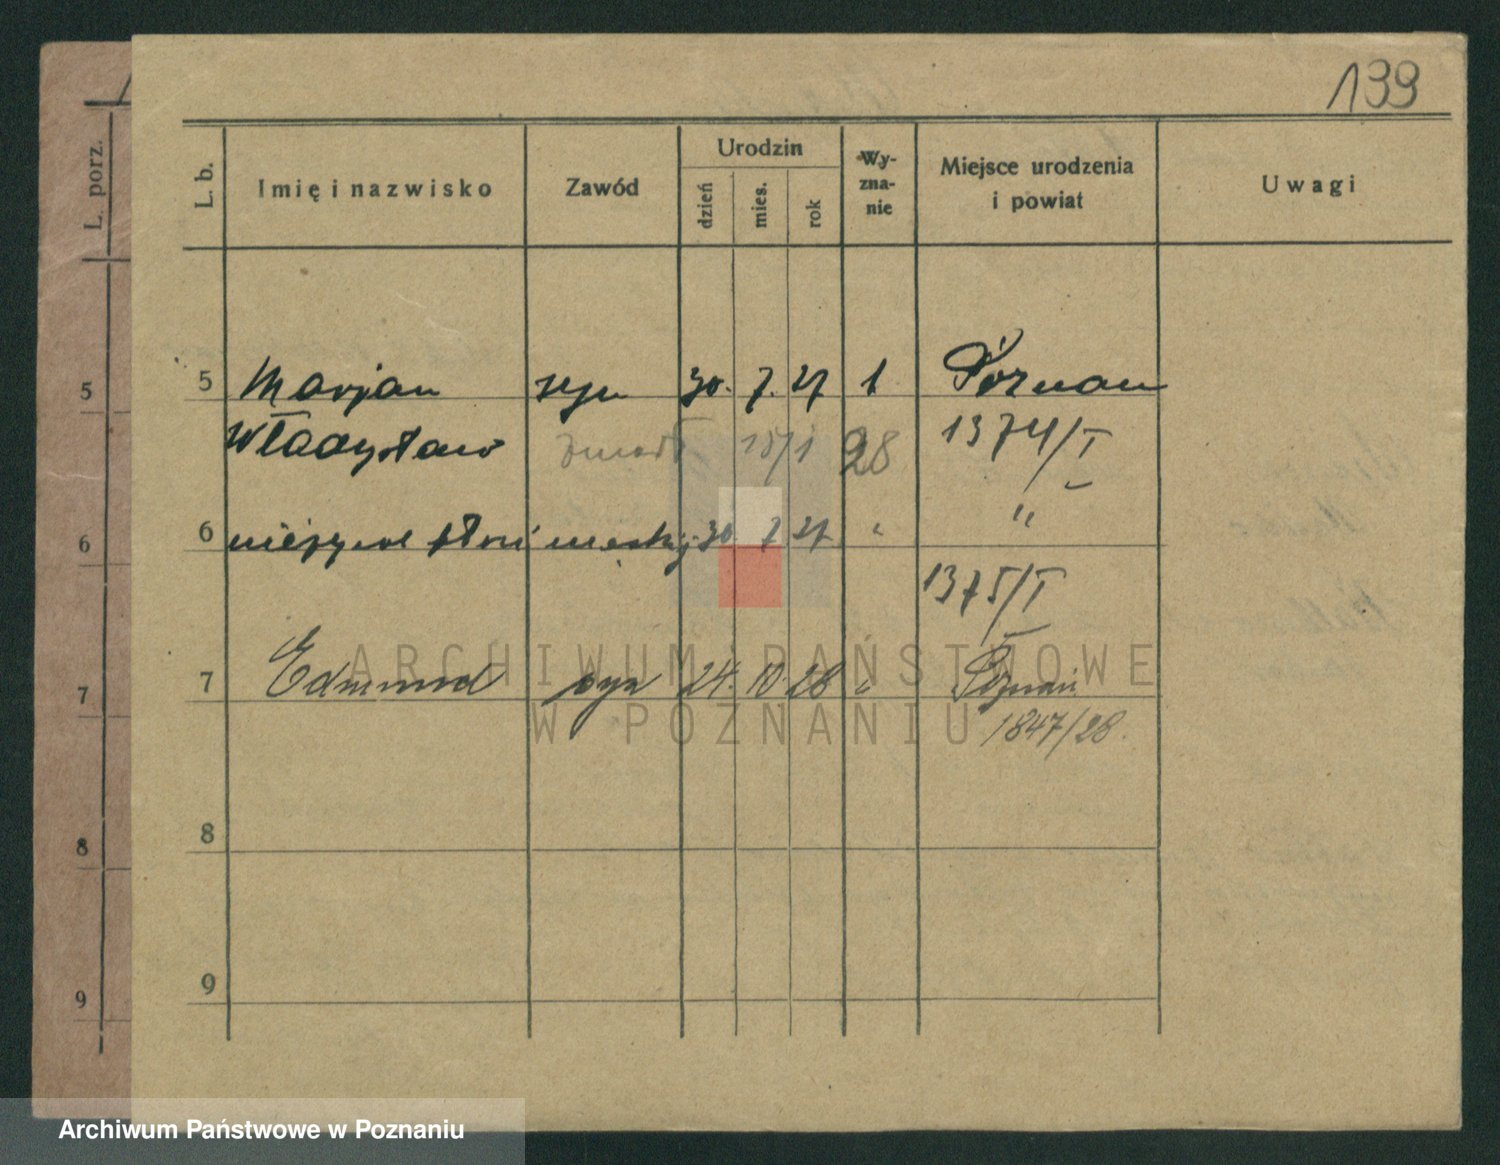 139
L. porz.
L. b.
Imię i nazwisko
Zawód
Urodzin
dzień
mies.
rok
Wy-
zna-
nie
Miejsce urodzenia
i powiat
Uwagi
5
5 Marjan syn 30. 7. 27 1 Poznań
Władysław zmarł 15/1 28 1374/I
6
6 nieżywe płci męskiej 30 7 27 " "
1375/I
7
7 Edmund syn 24. 10. 28 " Poznań
1847/28.
8
8
9
9
ARCHIWUM PAŃSTWOWE
W POZNANIU
Archiwum Państwowe w Poznaniu